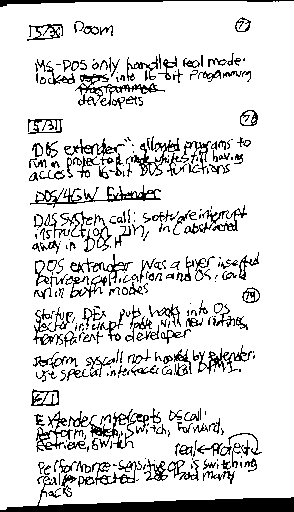 5/30 Doom
77
MS-DOS only handled real mode.
locked into 16-bit programming
developers
5/31
78
"DOS extender": allowed programs to
run in protected mode while still having
access to 16-bit DOS functions
DOS/4GW Extender
DOS system call: software interrupt
instruction 21h, in C abstracted
away in DOS.H
DOS extender was a layer inserted
between application and OS; could
run in both modes
79
Startup, DEx puts hooks into OS
vector interrupt table with new routines,
transparent to developer
Perform syscall not hooked by extender,
use special interface called DPMI.
6/1
Extender intercepts OS call:
Perform, switch, forward,
Retrieve, switch
real ← Protect
Performance-sensitive op is switching
real protected. 286 had many
hacks